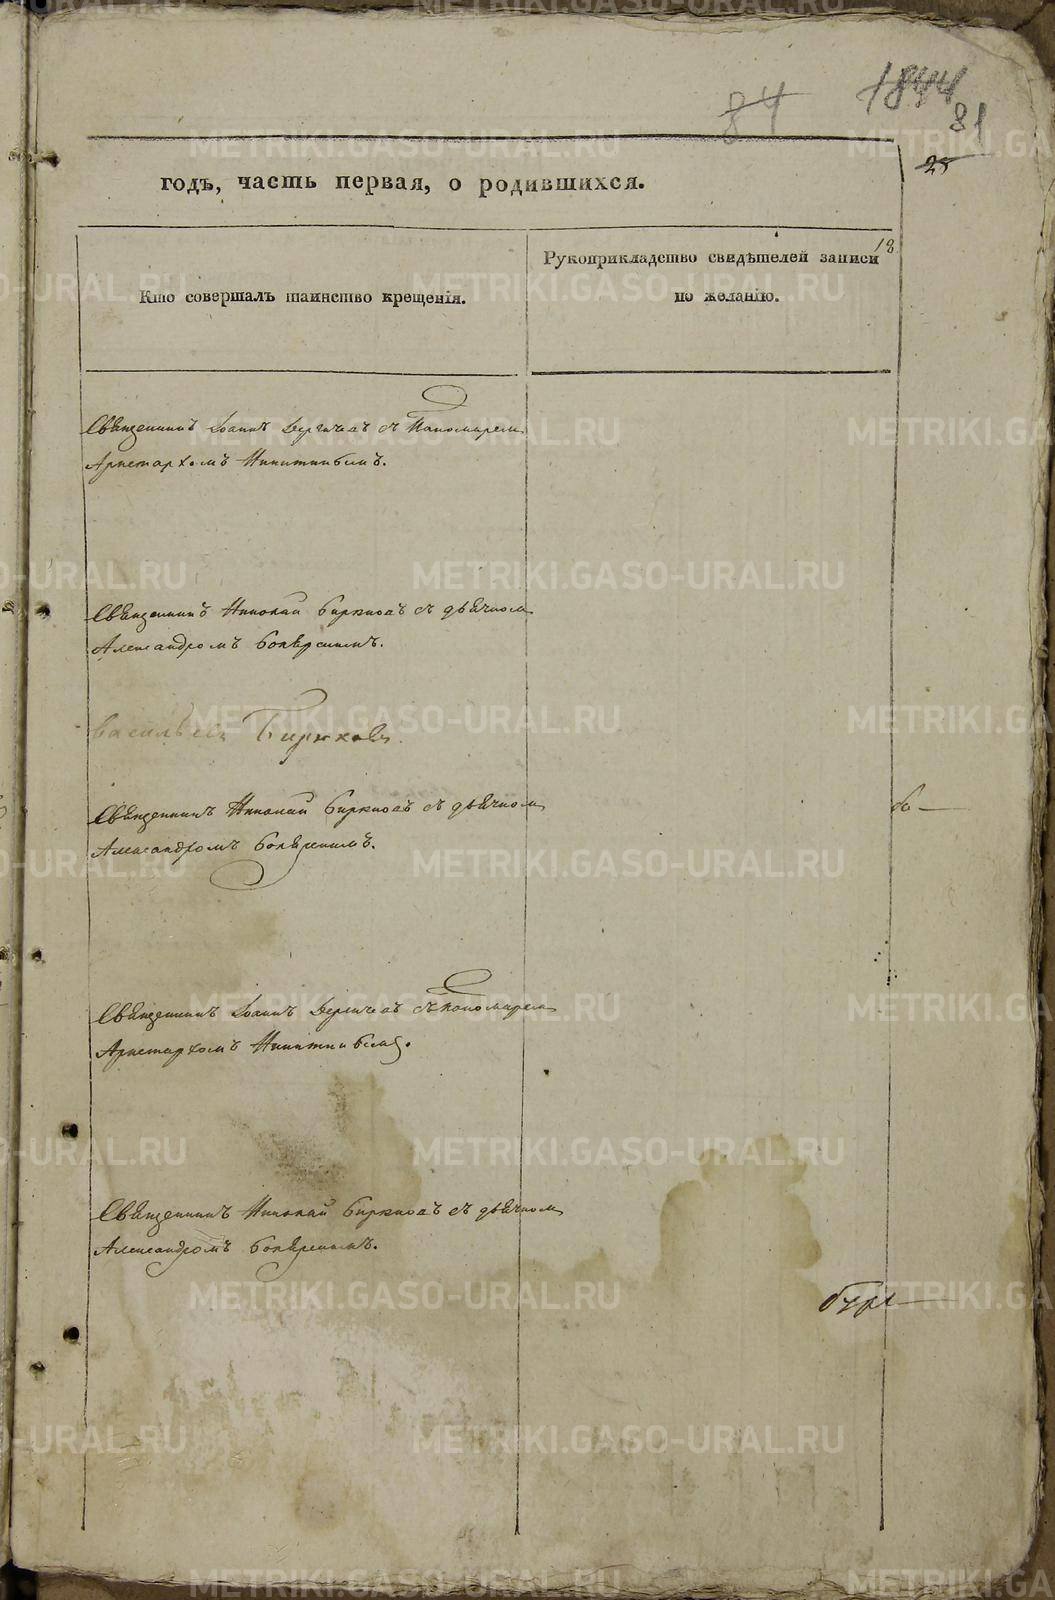 1844
84
81
25
годъ, часть первая, о родившихся.
18
Кто совершалъ таинство крещенія.
Рукоприкладство свидѣтелей записи
по желанію.
Священникъ Іоаннъ съ Пономаремъ
Аристархомъ Никитинымъ.
Священникъ Николай Бирюковъ съ дьячкомъ
Александромъ
Бирюковъ
Священникъ Николай Бирюковъ съ дьячкомъ
Александромъ
Священникъ Іоаннъ съ пономаремъ
Аристархомъ Никитинымъ.
Священникъ Николай Бирюковъ съ дьячкомъ
Александромъ
METRIKI.GASO-URAL.RU